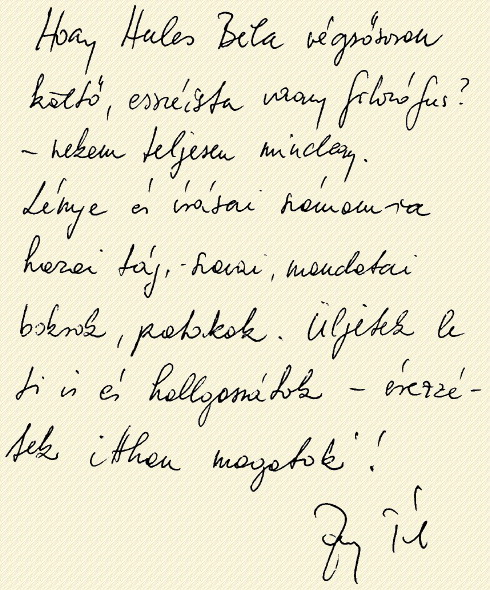 Hogy Hules Béla végsősoron
költő, esszéista vagy filozófus?
– nekem teljesen mindegy.
Lénye és írásai számom-ra
hazai táj, – szavai, mondatai
bokrok, patakok. Üljetek le
ti is és hallgassátok – érezzé-
tek itthon magatok!
Pál